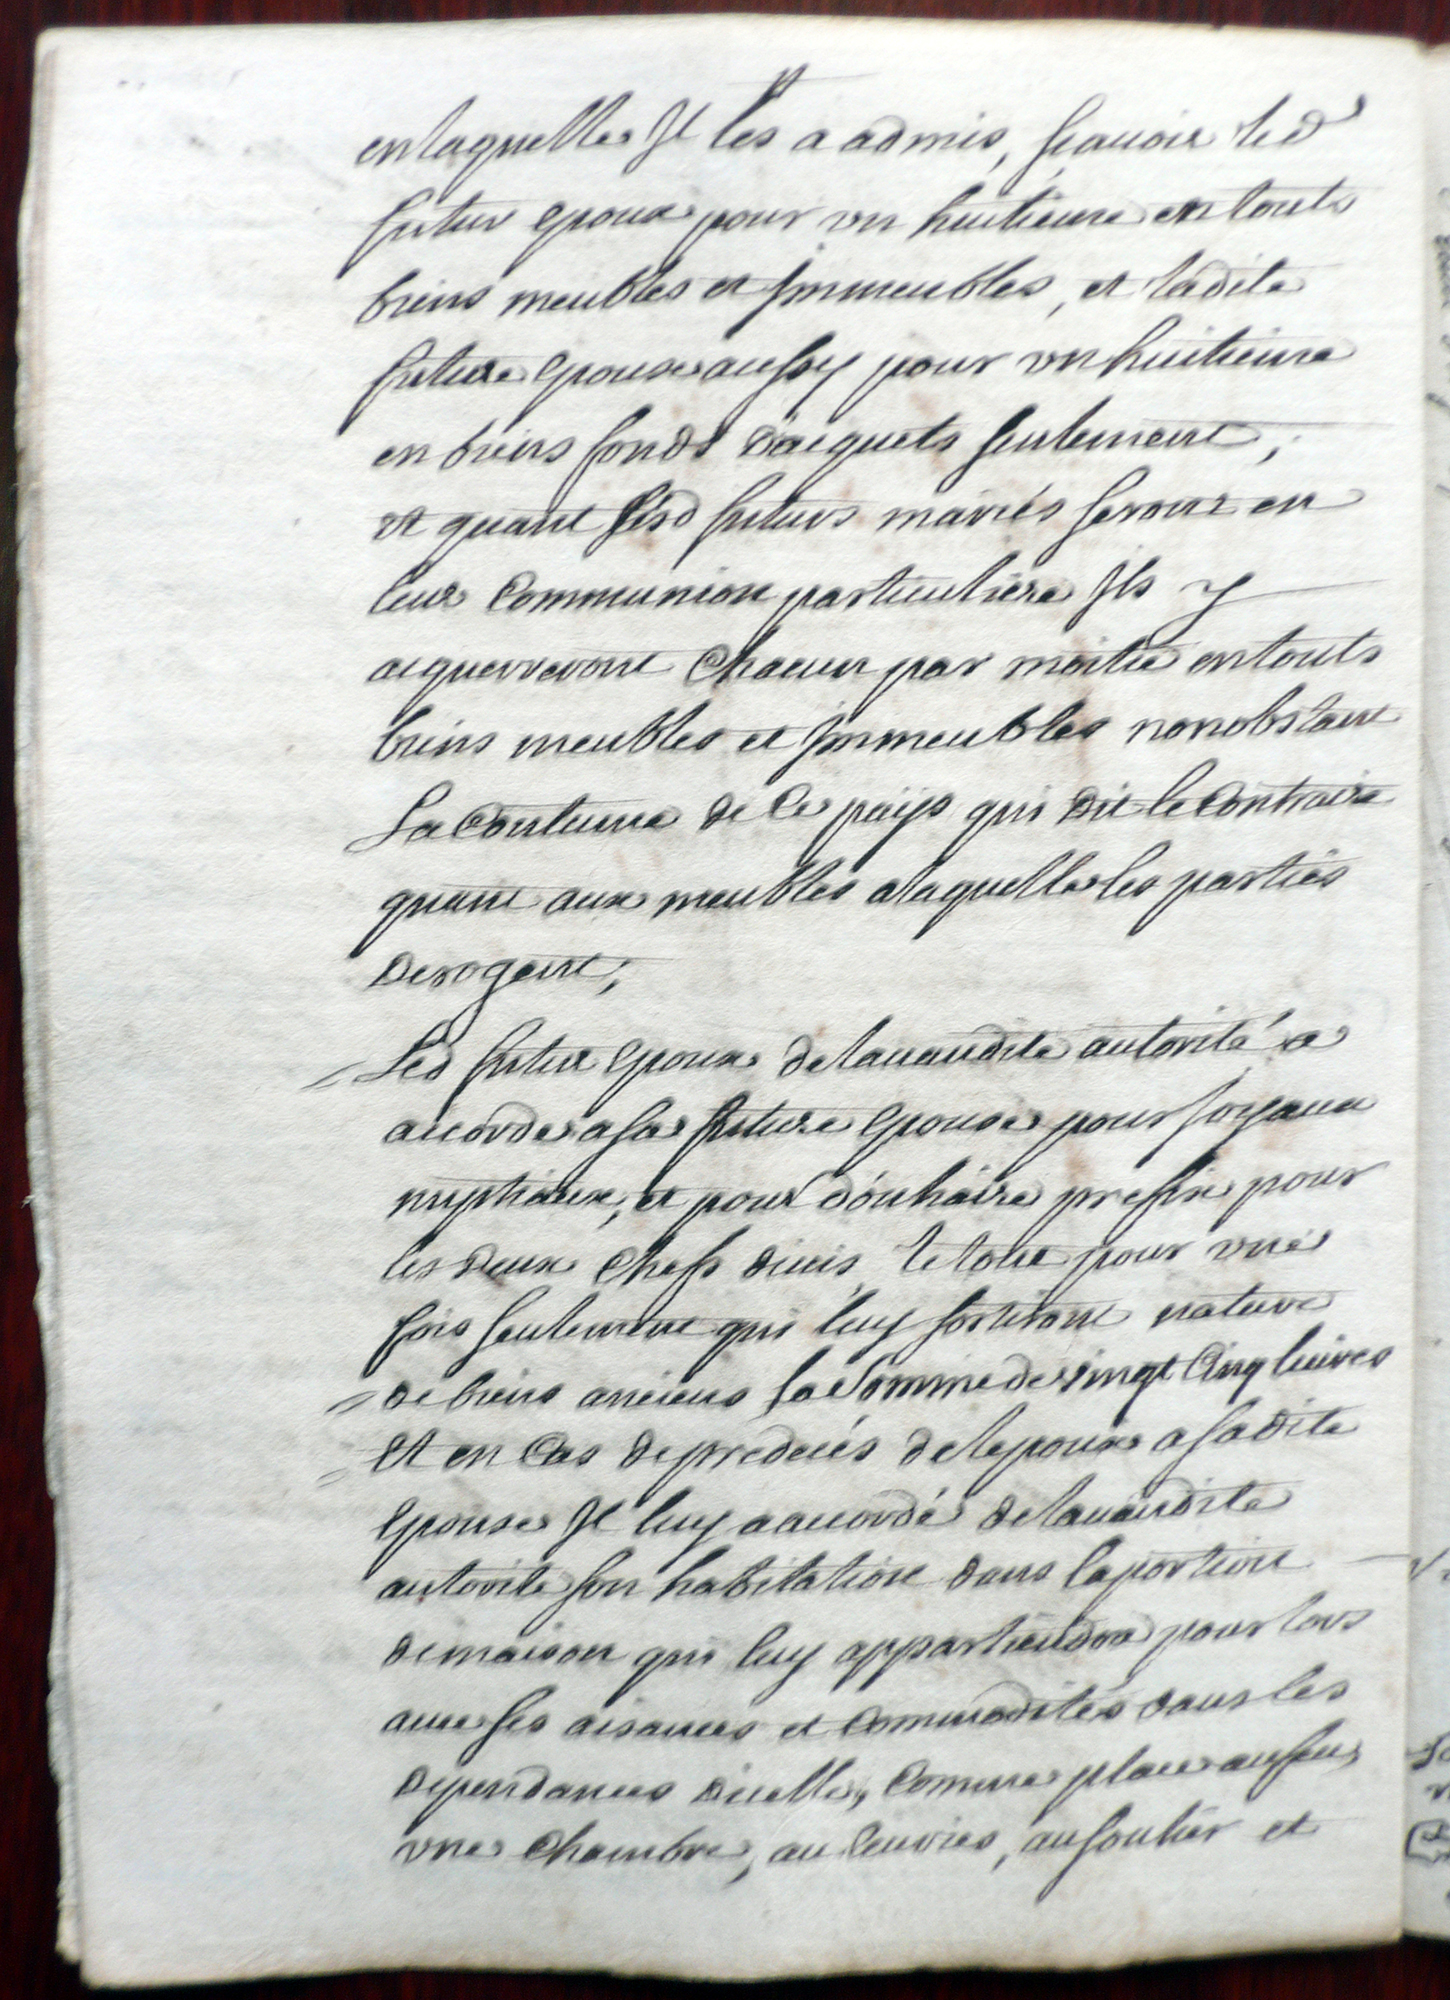 en laquelle Jl les a admis, scauoir led
futur epoux pour vn huitieme en touts
biens meubles et jmmeubles, et ladite
future epouse aussy pour vn huitieme
en biens fonds d'acquets seulement ;
et quant lesd futurs mariés seront en
leur Communion particuliere Jls y
acquerreront Chacun par moitie en touts
biens meubles et jmmeubles nonobstant
La Coutume de Ce païs qui dit le Contraire
quant aux meubles a laquelle les parties
derogent ;
Led futur epoux de lauandite autorité a
accorde a sa future epouse pour joyaux
nuptiaux, et pour douhaire prefix pour
les deux Chefs diceis, le tout pour vne
fois seulement qui luy sortiront nature
de biens anciens la somme de vingt Cinq liures
Et en Cas de predecés de lepoux a sadite
epouse Jl luy a accordé de lauandite
autorite son habitation dans la portion
de maison qui luy appartiendra pour lors
auec ses aisances et Commodités dans les
dependances dicelle, Comme place au feu,
vne Chambre, au Cuvier, au soulier et